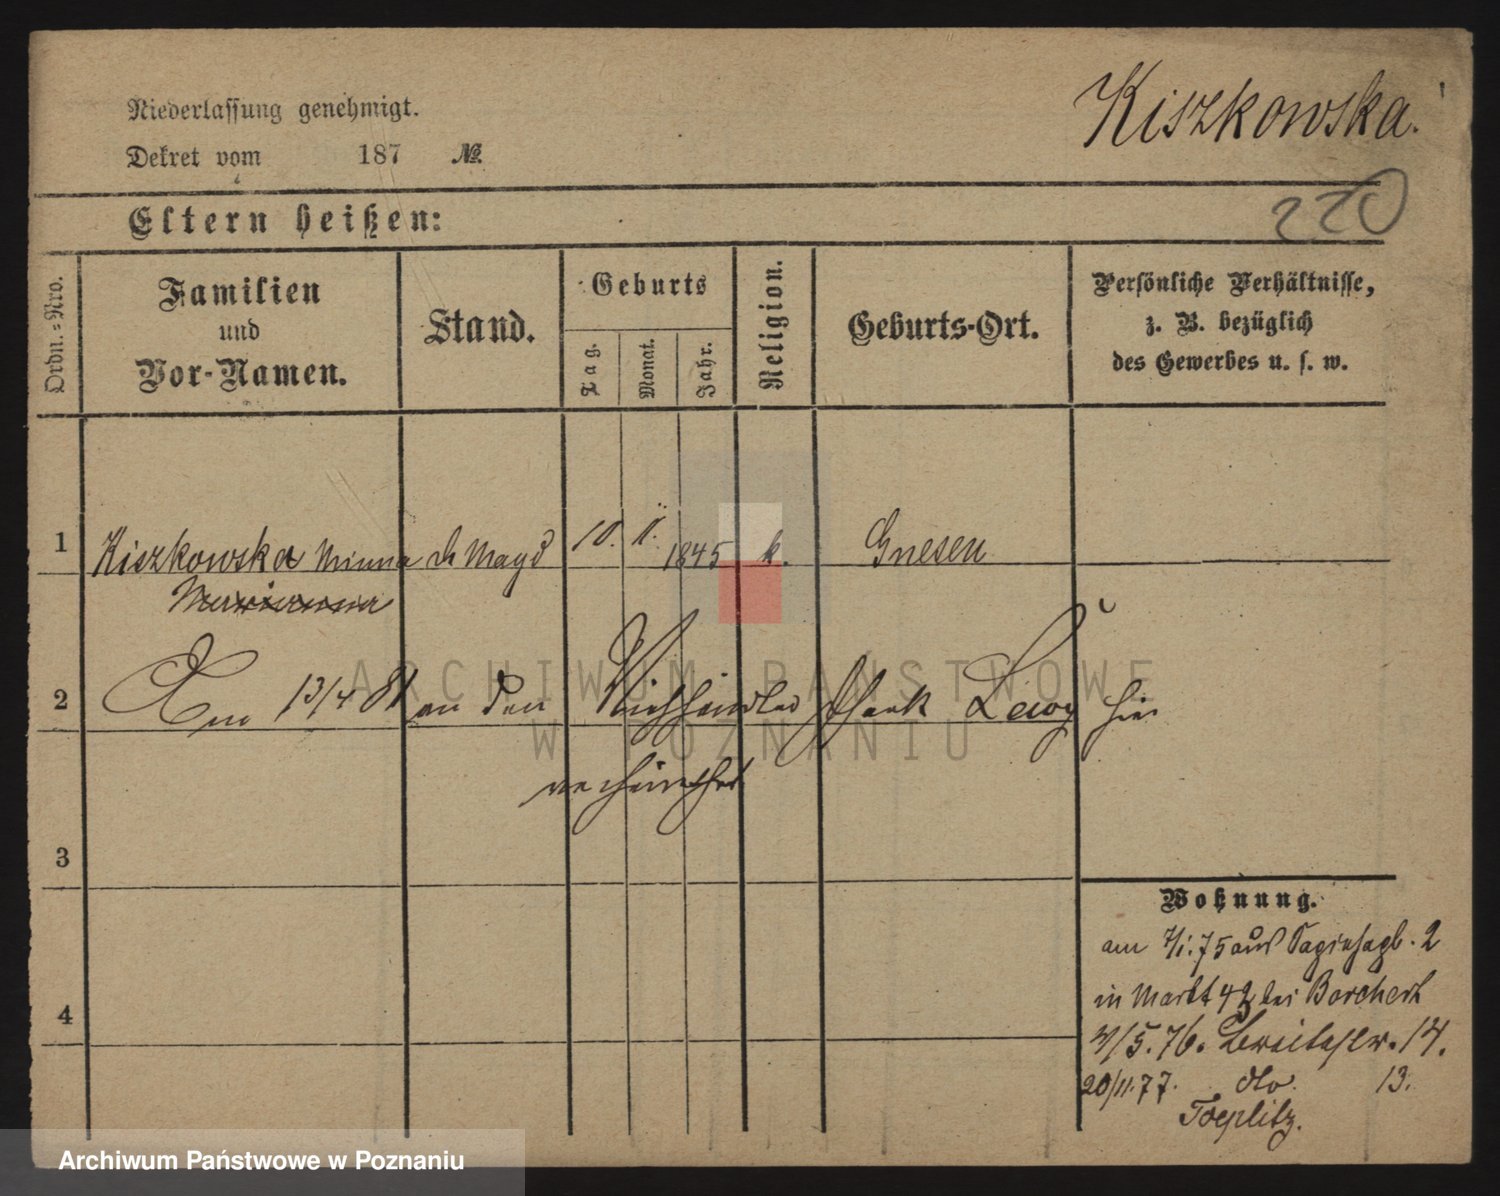 Niederlassung genehmigt.
Kiszkowska.
Dekret vom 187 №.
220
Eltern heißen:
Ordn.=Nro.
Familien
und
Vor-Namen.
Stand.
Geburts
Tag.
Monat.
Jahr.
Religion.
Geburts-Ort.
Persönliche Verhältnisse,
z. B. bezüglich
des Gewerbes u. s. w.
1 Kiszkowska Minna Magd 10. II. 1845 k. Gnesen
Marianna
2 Am 13/4 81 an den Viehhändler Lewy hier
verheirathet
3
Wohnung.
am 7/1.75 aus 2
in Markt 42 bei Borchert
4
4/5.76. Breitestr. 14.
20/11.77. dto. 13.
Toeplitz.
ARCHIWUM PAŃSTWOWE
W POZNANIU
Archiwum Państwowe w Poznaniu